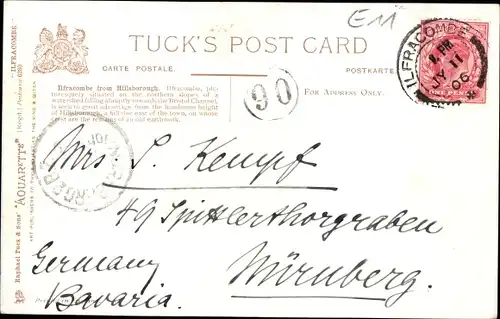 E11
TUCK'S POST CARD
CARTE POSTALE.
POSTKARTE
Ilfracombe from Hillsborough. Ilfracombe, pic-
turesquely situated on the northern slopes of a
watershed falling abruptly towards the Bristol Channel,
is seen to great advantage from the handsome height
of Hillsborough, a hill due east of the town, on whose
crest are the remains of an old earthwork.
FOR ADDRESS ONLY.
90
ILFRACOMBE
MY 11
06
ONE PENNY
Mrs. S. Kempf
49 Spittlerthorgraben
Germany
Nürnberg.
Bavaria.
"ILFRACOMBE."
Raphael Tuck & Sons' "AQUARETTE"
ART PUBLISHERS